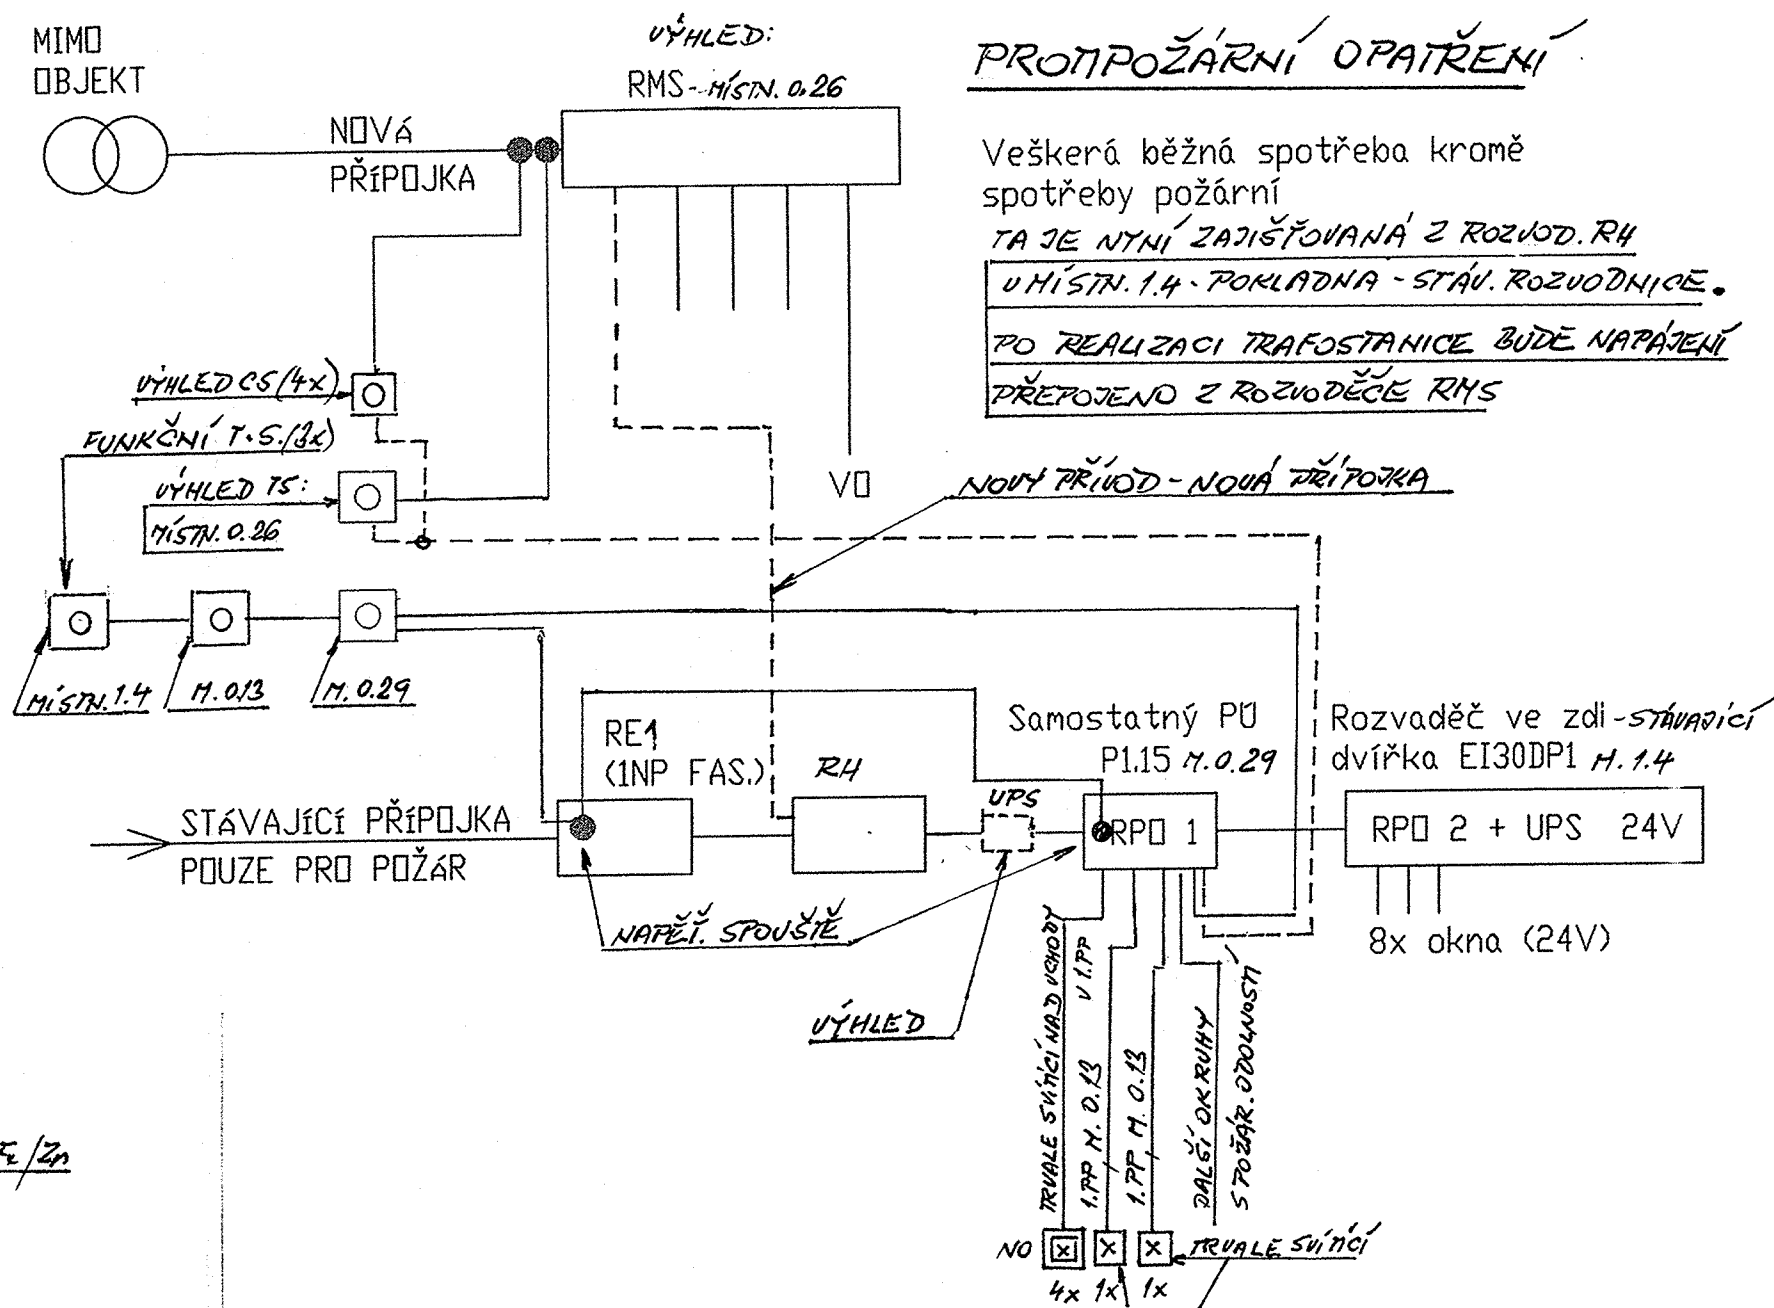 MIMO
OBJEKT
NOVÁ
PŘÍPOJKA
VÝHLED:
RMS-MÍSTN. 0.26
PROTIPOŽÁRNÍ OPATŘENÍ
Veškerá běžná spotřeba kromě
spotřeby požární
TA JE NYNÍ ZAJIŠŤOVANÁ Z ROZVOD. RH
V MÍSTN. 1.4 - POKLADNA - STÁV. ROZVODNICE.
PO REALIZACI TRAFOSTANICE BUDE NAPÁJENÍ
PŘEPOJENO Z ROZVODĚČE RMS
VÝHLED CS (4x)
FUNKČNÍ T.S. (3x)
VÝHLED TS:
MÍSTN. 0.26
VO
NOVÝ PŘÍVOD - NOVÁ PŘÍPOJKA
MÍSTN. 1.4
M. 0.13
M. 0.29
RE1
(1NP FAS.)
RH
UPS
Samostatný PÚ
P1.15 M. 0.29
Rozvaděč ve zdi - STÁVAJÍCÍ
dvířka EI30DP1 M. 1.4
STÁVAJÍCÍ PŘÍPOJKA
POUZE PRO POŽÁR
RPO 1
RPO 2 + UPS 24V
8x okna (24V)
NAPĚŤ. SPOUŠTĚ
VÝHLED
TRVALE SVÍTÍCÍ NAD VCHODY
V 1.PP
1.PP M. 0.13
1.PP M. 0.13
DALŠÍ OKRUHY
S POŽÁR. ODOLNOSTÍ
NO
TRVALE SVÍTÍCÍ
4x 1x 1x
/Zn